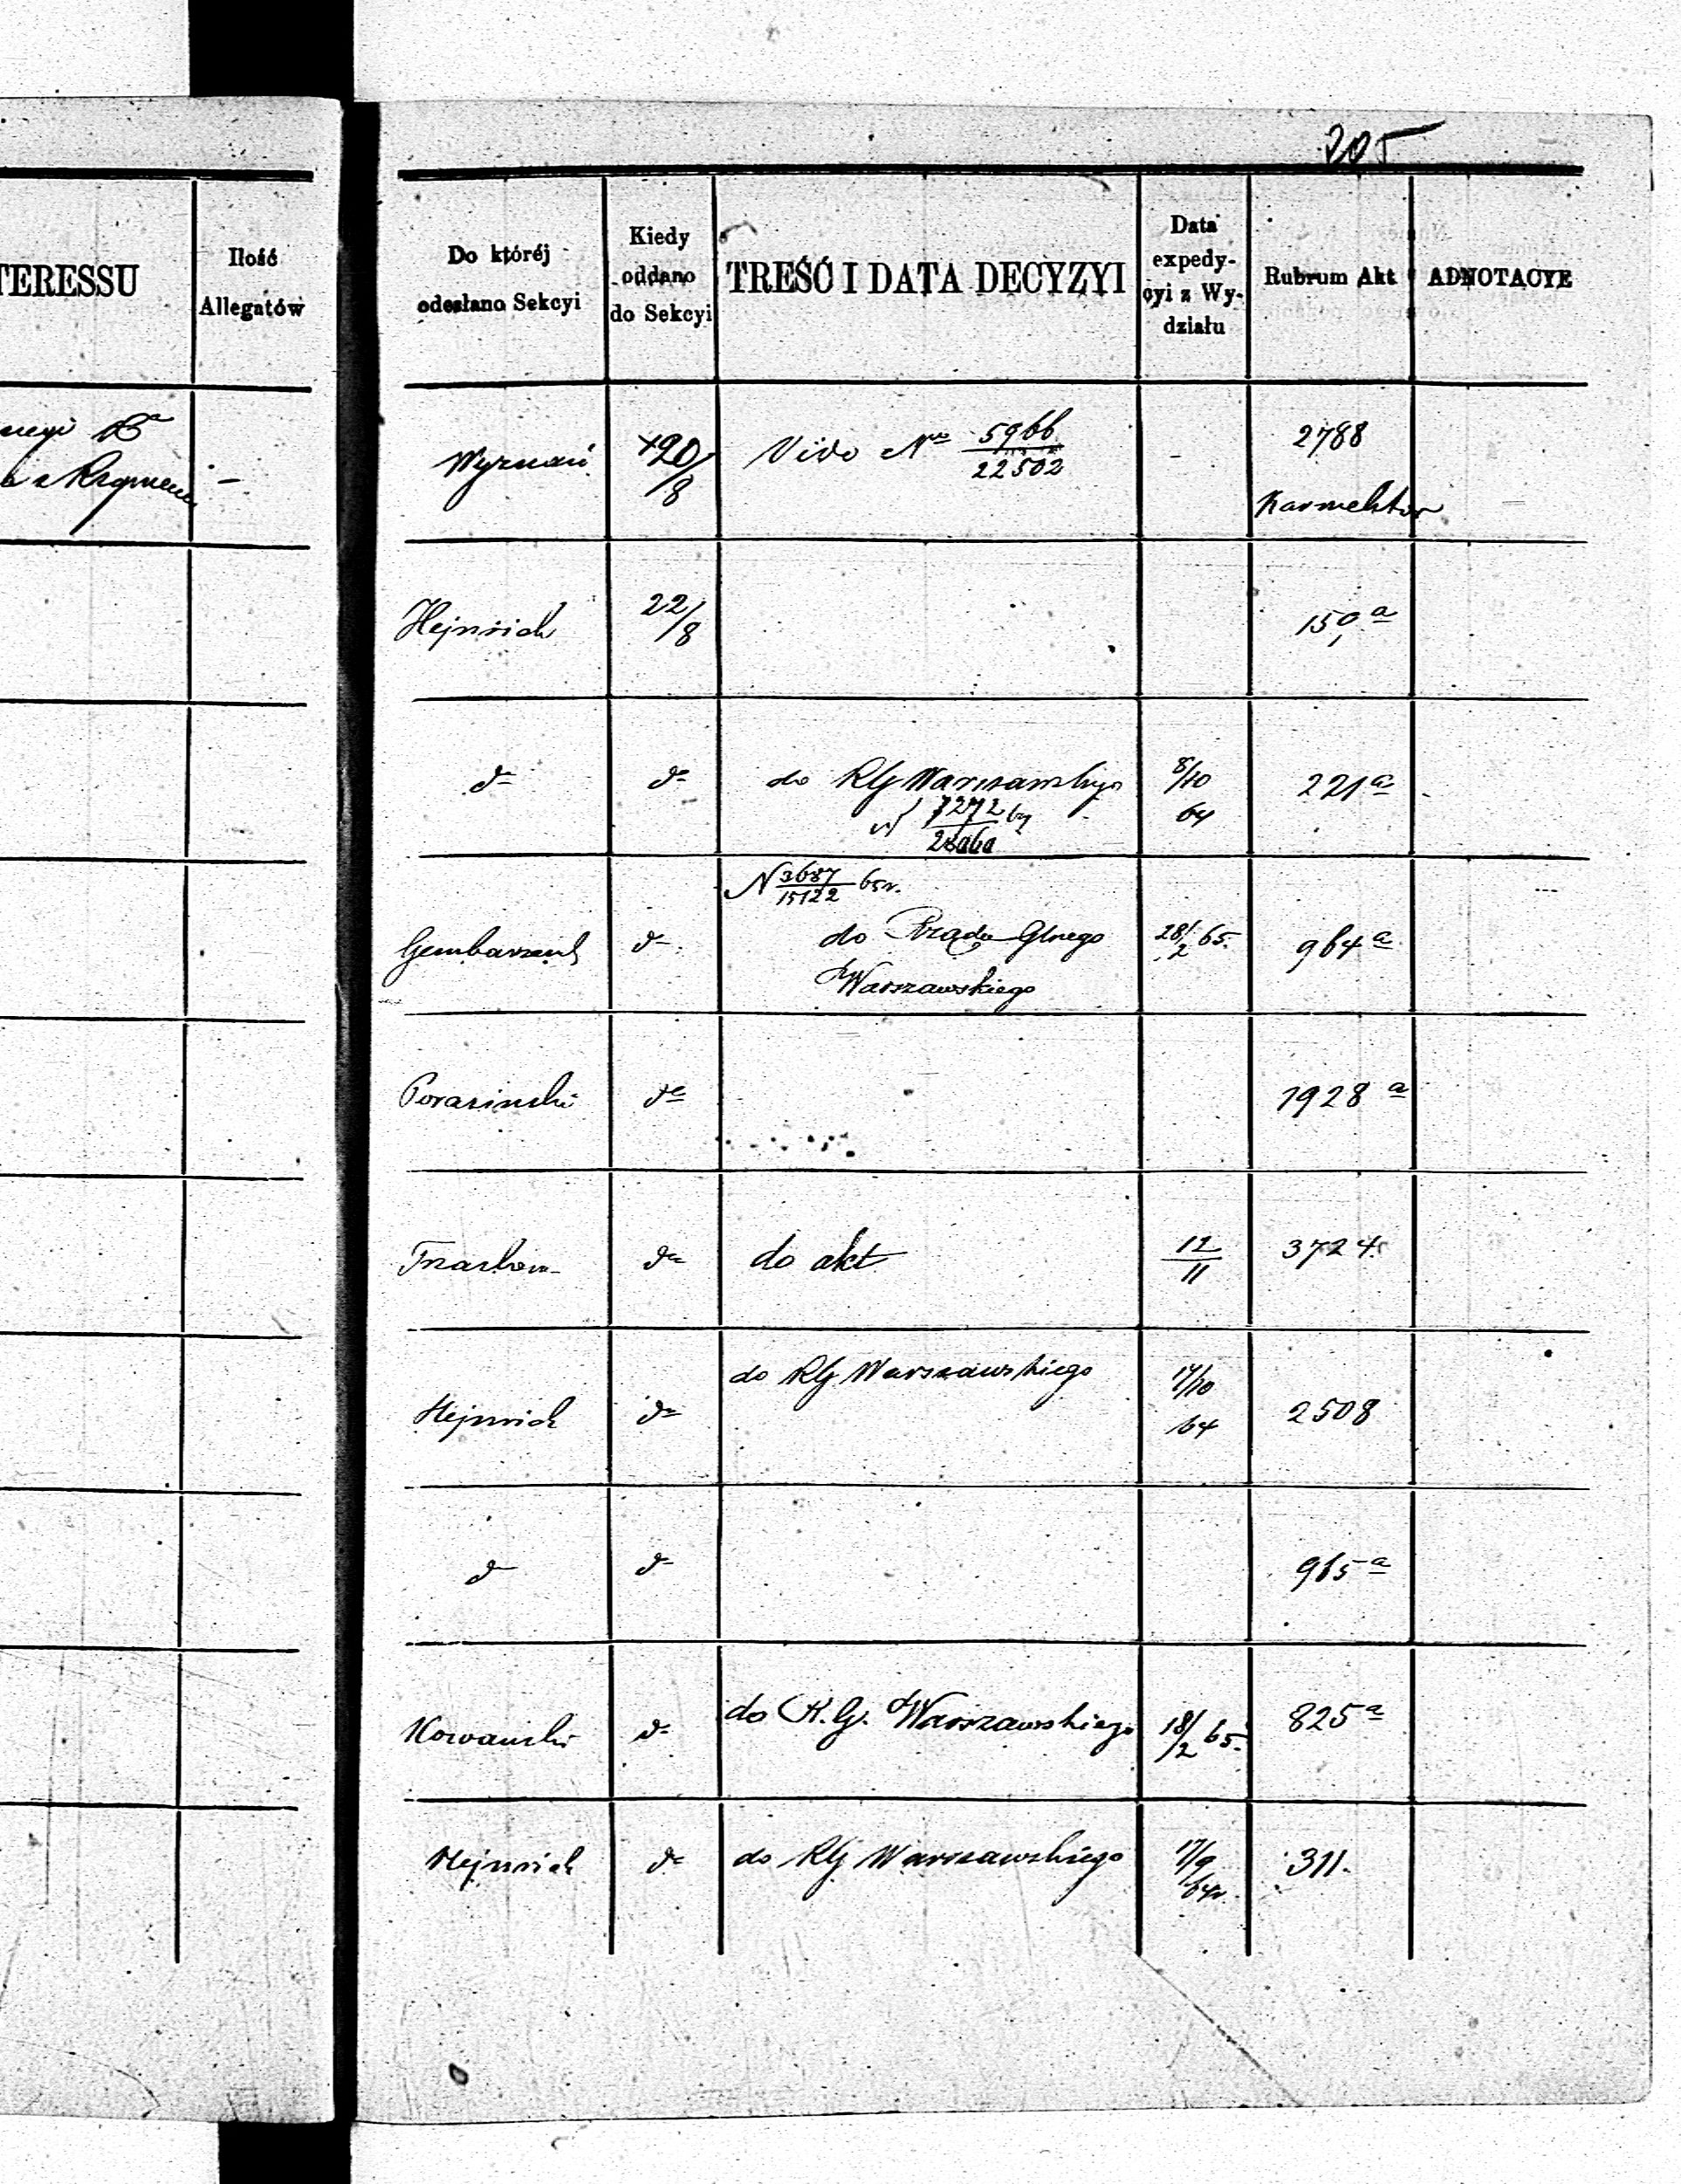 205
TERESSU
Ilość
Allegatów
Do któréj
odesłano Sekcyi
Kiedy
oddano
do Sekcyi
TREŚĆ I DATA DECYZYI
Data
expedy-
cyi z Wy-
działu
Rubrum Akt
ADNOTACYE
—
Wyznań
20/8
Vide Nro 5966/22502
-
2788
Hejnrich
22/8
150 a
do
do
do RG Warszawskiego
7272
8/10
64
221 a
N 3687/15122 65r.
do Rządu Glnego
Warszawskiego
do
28/2 65.
964 a
Porasinski
do
1928 a
do
do akt
12/11
3724
Hejnrich
do
do RG Warszawskiego
17/10
64
2508
do
do
965 a
do
do R.G. Warszawskiego
18/2 65.
825 a
Hejnrich
do
do RG Warszawskiego
17/9
64r.
311.